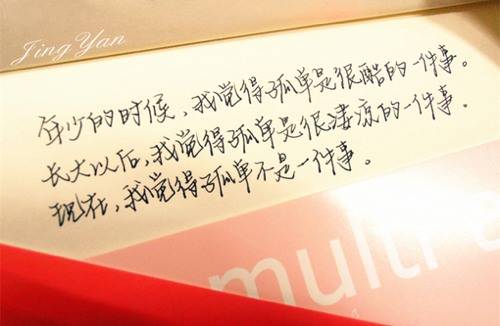 Jing Yan
年少的时候，我觉得孤单是很酷的一件事。
长大以后，我觉得孤单是很凄凉的一件事。
现在，我觉得孤单不是一件事。
multi